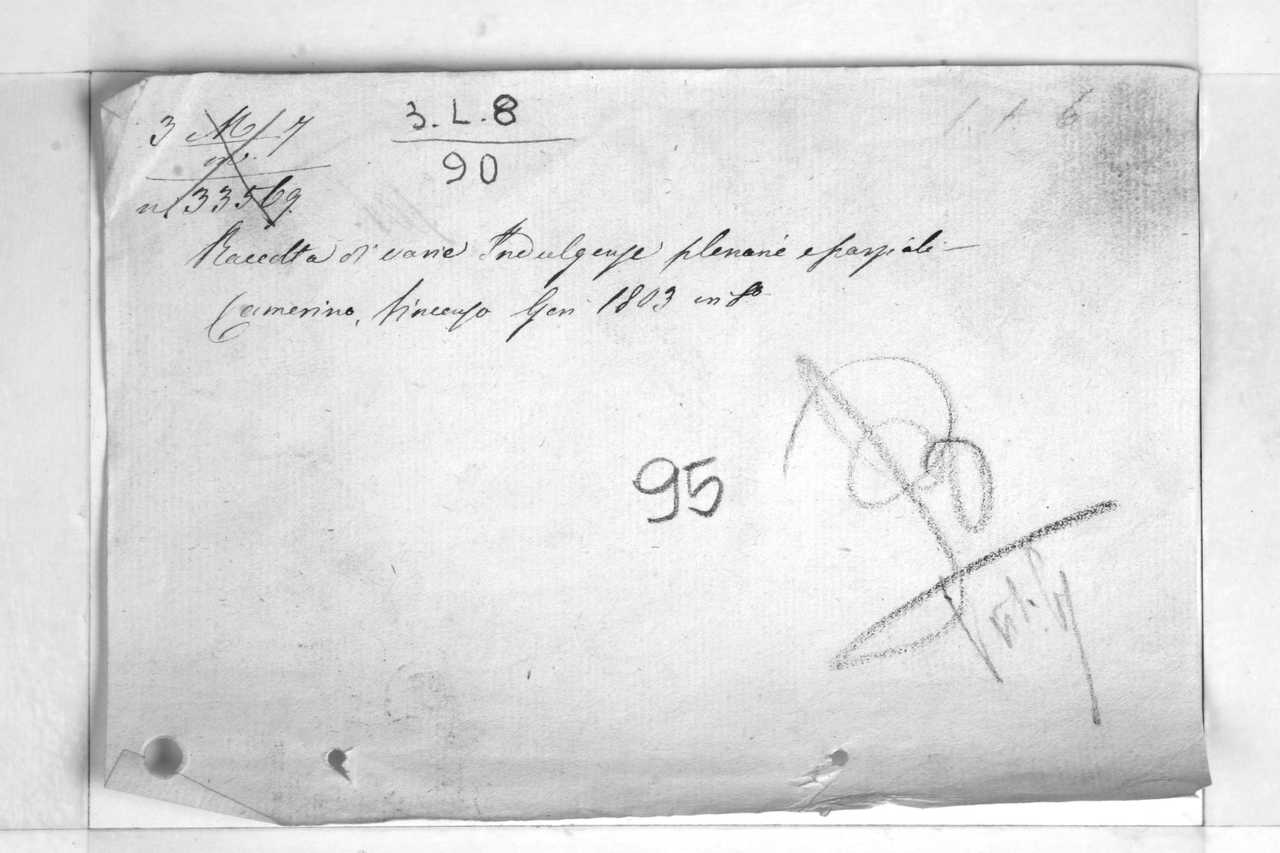 3 M 7
3.L.8
90
n. 33569.
Raccolta di varie Indulgenze plenarie e parziali
Camerino, Vincenzo Gori 1803 in 8°
95